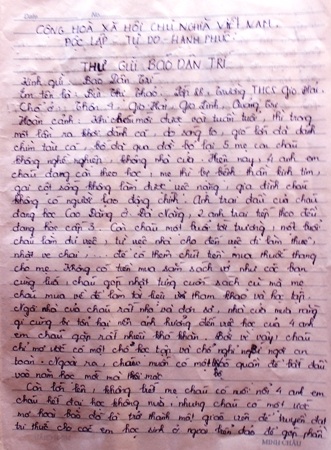 CÔNG HOÀ XÃ HỘI CHỦ NGHĨA VIỆT NAM
ĐỘC LẬP - TỰ DO - HẠNH PHÚC
THƯ GỬI BÁO DÂN TRÍ
Kính gửi: Báo Dân Trí
Em tên là: Bùi Thị Thảo. Lớp 8. Trường THCS Gio Hải.
Chỗ ở: Thôn 4, Gio Hải, Gio Linh, Quảng Trị.
Hoàn cảnh: Khi cháu mới được vài tuần tuổi, thì trong
một lần ra khơi đánh cá, do sóng to, gió lớn đã đánh
chìm tàu cá, bố đã qua đời bỏ lại 5 mẹ con cháu
không nghề nghiệp, không nhà cửa. Hiện nay, 4 anh em
cháu đang còn theo học, mẹ thì bị bệnh thần kinh tim,
gai cột sống không làm được việc nặng, gia đình cháu
không có người lao động chính. Anh trai đầu của cháu
đang học Cao Đẳng ở Đà Nẵng, 2 anh trai tiếp theo đều
đang học cấp 3. Còn cháu một buổi tới trường, một buổi
cháu làm đủ việc, từ việc nhỏ cho đến việc đi làm thuê,
nhặt ve chai,... để có thêm chút tiền mua thuốc thang
cho mẹ. Không có tiền mua sắm sách vở như các bạn
cùng tuổi cháu góp nhặt từng cuốn sách cũ mà mẹ
cháu mua về để làm tài liệu tham khảo và học tập.
Ngôi nhà của cháu rất nhỏ và đơn sơ, nhà cửa mưa nắng
gì cũng bị ảnh hưởng đến việc học của 4 anh
em cháu gặp rất nhiều khó khăn. Bởi vì vậy, cháu
chỉ mơ ước có một chỗ học tập và chỗ nghỉ ngơi an
toàn. Ngoài ra, cháu muốn có một bộ quần áo để bắt đầu
vào năm học mới mà thôi.
Còn lớn lên, không biết mẹ cháu có nuôi nổi 4 anh em
cháu hết đại học không nữa, nhưng cháu có một ước
mơ hoài bão đó là trở thành một giáo viên để truyền đạt
tri thức cho các em học sinh ở ngoài biển đảo để góp phần
MINH CHÂU